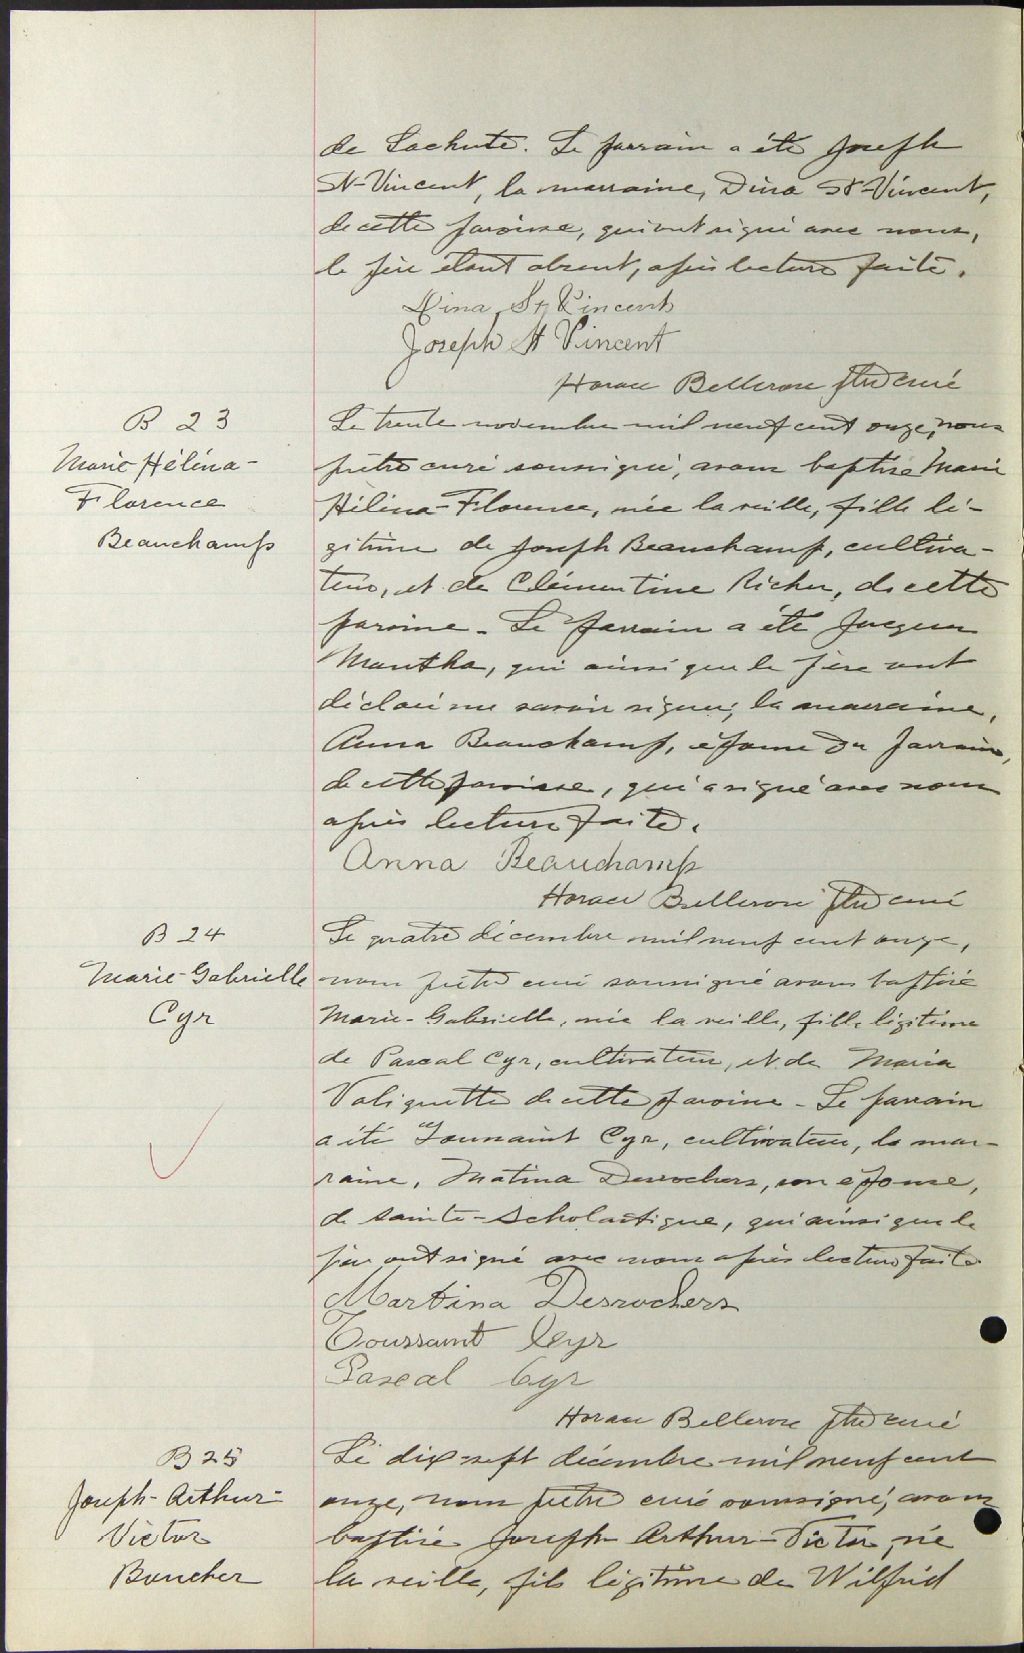 de Lachute. Le parrain a été Joseph
St-Vincent, la marraine, Dina St-Vincent,
de cette paroisse, qui ont signé avec nous,
le père étant absent, après lecture faite.
Dina St Vincent
Joseph St Vincent
Horace Bellerose ptre curé
B 23
Marie-Héléna-
Florence
Beauchamp
Le trente novembre mil neuf cent onze, nous
prêtre curé soussigné, avons baptisé Marie
Héléna-Florence, née la veille, fille lé-
gitime de Joseph Beauchamp, cultiva-
teur, et de Clémentine Richer, de cette
paroisse - Le parrain a été Jacques
Mantha, qui ainsi que le père ont
déclaré ne savoir signer; la marraine,
Anna Beauchamp, épouse du parrain,
de cette paroisse, qui a signé avec nous
après lecture faite.
Anna Beauchamp
Horace Bellerose ptre curé
B 24
Marie-Gabrielle
Cyr
Le quatre décembre mil neuf cent onze,
nous prêtre curé soussigné avons baptisé
Marie-Gabrielle, née la veille, fille légitime
de Pascal Cyr, cultivateur, et de Maria
Valiquette de cette paroisse - Le parrain
a été Toussaint Cyr, cultivateur, la mar-
raine, Matina Desrochers, son épouse,
de Sainte-Scholastique, qui ainsi que le
père ont signé avec nous après lecture faite
Martina Desrochers
Toussaint Cyr
Pascal Cyr
Horace Bellerose ptre curé
B 25
Joseph-Arthur-
Victor
Boucher
Le dix-sept décembre mil neuf cent
onze, nous prêtre curé soussigné, avons
baptisé Joseph-Arthur-Victor, né
la veille, fils légitime de Wilfrid